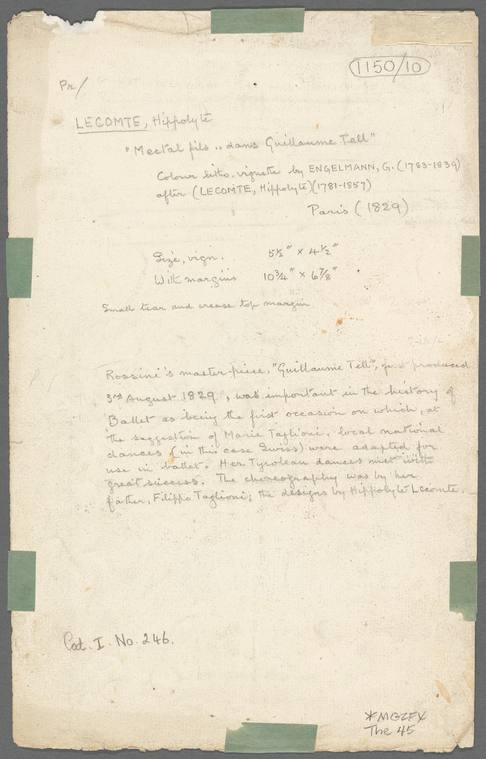 1150/10
Pr/
LECOMTE, Hippolyte
"Mectal fils .. dans Guillaume Tell"
Colour litho. vignette by ENGELMANN, G. (1783-1839)
after (LECOMTE, Hippolyte) (1781-1857)
Paris (1829)
Size, vign. 5½" x 4½"
With margins 10¾" x 6⅞"
Small tear and crease top margin
Rossini's master-piece, "Guillaume Tell", first produced
3rd August 1829, was important in the history of
Ballet as being the first occasion on which, at
the suggestion of Marie Taglioni, local national
dances (in this case Swiss) were adapted for
use in ballet. Her Tyrolean dances met with
great success. The choreography was by her
father, Filippo Taglioni; the designs by Hippolyte Lecomte.
Cat. I. No. 246.
*MGZFX
The 45